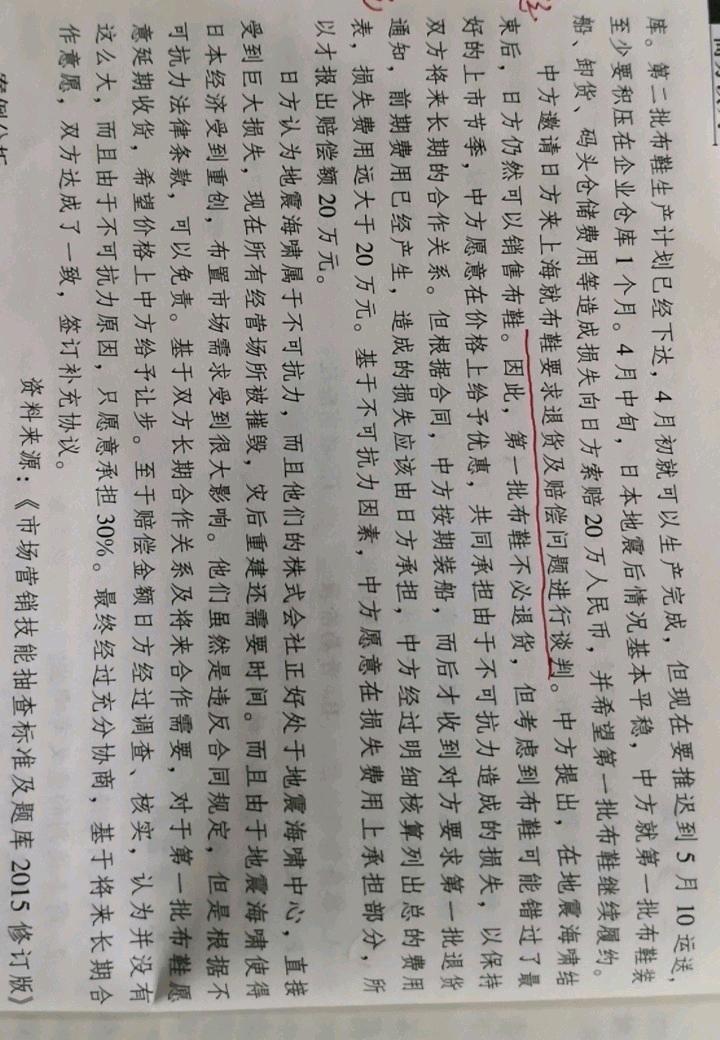 库。第二批布鞋生产计划已经下达，4月初就可以生产完成，但现在要推迟到5月10运送，
至少要积压在企业仓库1个月。4月中旬，日本地震后情况基本平稳，中方就第一批布鞋装
船、卸货、码头仓储费用等造成损失向日方索赔20万人民币，并希望第一批布鞋继续履约。
中方邀请日方来上海就布鞋要求退货及赔偿问题进行谈判。中方提出，在地震海啸结
束后，日方仍然可以销售布鞋。因此，第一批布鞋不必退货，但考虑到布鞋可能错过了最
好的上市节季，中方愿意在价格上给予优惠，共同承担由于不可抗力造成的损失，以保持
双方将来长期的合作关系。但根据合同，中方按期装船，而后才收到对方要求第一批退货
通知，前期费用已经产生，造成的损失应该由日方承担，中方经过明细核算列出总的费用
表，损失费用远大于20万元。基于不可抗力因素，中方愿意在损失费用上承担部分，所
以才报出赔偿额20万元。
日方认为地震海啸属于不可抗力，而且他们的株式会社正好处于地震海啸中心，直接
受到巨大损失，现在所有经营场所被摧毁，灾后重建还需要时间。而且由于地震海啸使得
日本经济受到重创，布置市场需求受到很大影响。他们虽然是违反合同规定，但是根据不
可抗力法律条款，可以免责。基于双方长期合作关系及将来合作需要，对于第一批布鞋愿
意延期收货，希望价格上中方给予让步。至于赔偿金额日方经过调查、核实，认为并没有
这么大，而且由于不可抗力原因，只愿意承担30%。最终经过充分协商，基于将来长期合
作意愿，双方达成了一致，签订补充协议。
资料来源：《市场营销技能抽查标准及题库2015修订版》
案例分析